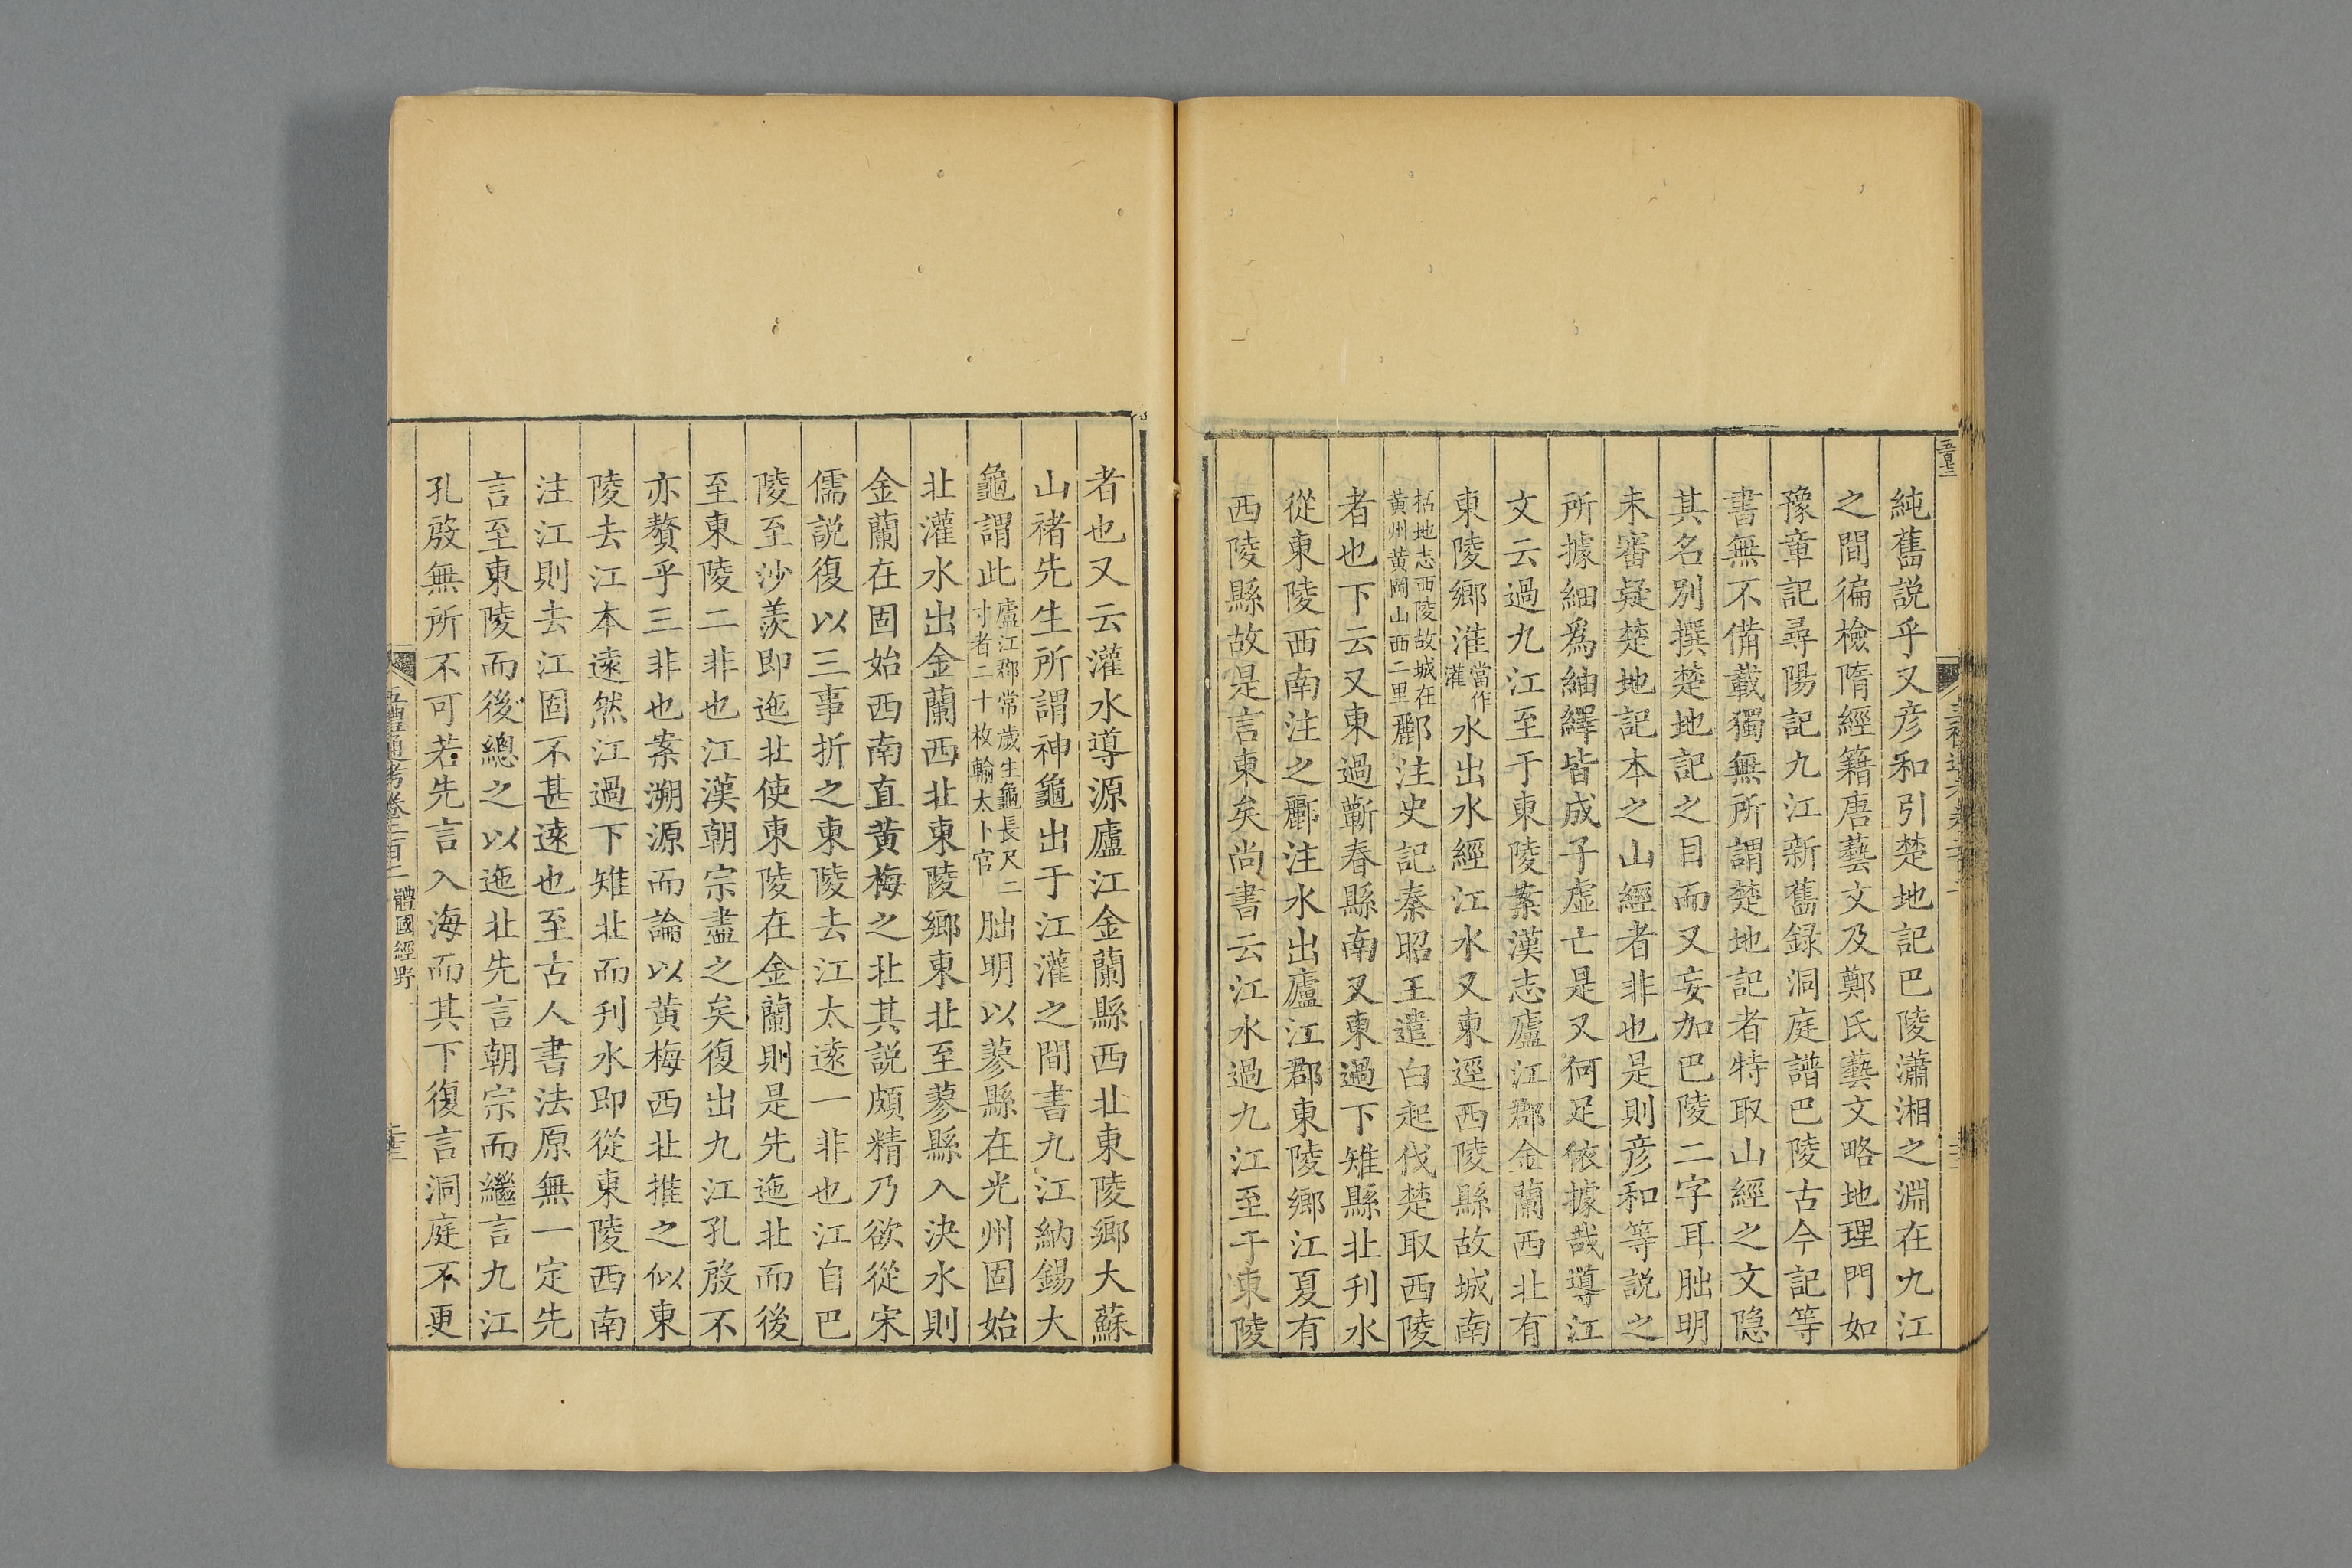 純舊説乎又彦和引楚地記巴陵瀟湘之淵在九江
之間徧檢隋經籍唐藝文及鄭氏藝文略地理門如
豫章記尋陽記九江新舊録洞庭譜巴陵古今記等
書無不備載獨無所謂楚地記者特取山經之文隠
其名別撰楚地記之目而又妄加巴陵二字耳朏明
未審疑楚地記本之山經者非也是則彦和等説之
所據細爲紬繹皆成子虚亡是又何足依據哉導江
文云過九江至于東陵案漢志廬江郡金蘭西北有
東陵鄉淮當作灌水出水經江水又東逕西陵縣故城南
括地志西陵故城在黄州黄岡山西二里酈注史記秦昭王遣白起伐楚取西陵
者也下云又東過蘄春縣南又東過下雉縣北利水
從東陵西南注之酈注水出廬江郡東陵鄉江夏有
西陵縣故是言東矣尚書云江水過九江至于東陵
者也又云灌水導源廬江金蘭縣西北東陵鄉大蘇
山褚先生所謂神龜出于江灌之間書九江納錫大
龜謂此廬江郡常歲生龜長尺二寸者二十枚輸太卜官朏明以蓼縣在光州固始
北灌水出金蘭西北東陵鄉東北至蓼縣入決水則
金蘭在固始西南直黄梅之北其説頗精乃欲從宋
儒説復以三事折之東陵去江太逺一非也江自巴
陵至沙羡即迤北使東陵在金蘭則是先迤北而後
至東陵二非也江漢朝宗盡之矣復出九江孔殷不
亦贅乎三非也案溯源而論以黄梅西北推之似東
陵去江本逺然江過下雉北而刋水即從東陵西南
注江則去江固不甚逺也至古人書法原無一定先
言至東陵而後總之以迤北先言朝宗而繼言九江
孔殷無所不可若先言入海而其下復言洞庭不更
五禮通考卷二百二 體國經野